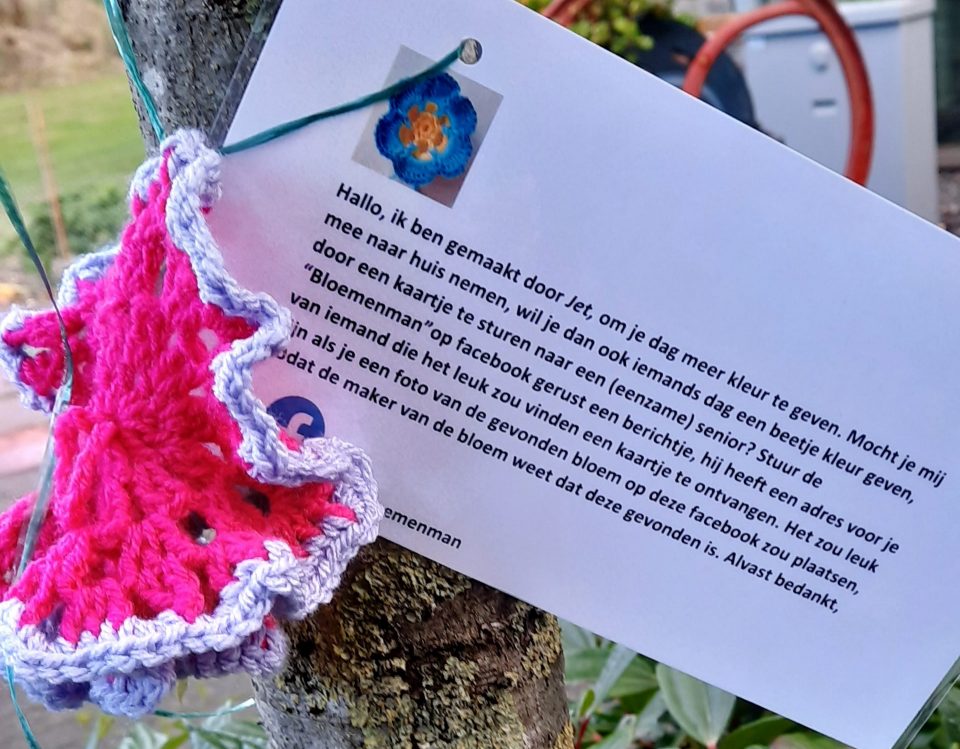 Hallo, ik ben gemaakt door Jet, om je dag meer kleur te geven. Mocht je mij
mee naar huis nemen, wil je dan ook iemands dag een beetje kleur geven,
door een kaartje te sturen naar een (eenzame) senior? Stuur de
“Bloemenman”op facebook gerust een berichtje, hij heeft een adres voor je
van iemand die het leuk zou vinden een kaartje te ontvangen. Het zou leuk
als je een foto van de gevonden bloem op deze facebook zou plaatsen,
de maker van de bloem weet dat deze gevonden is. Alvast bedankt,